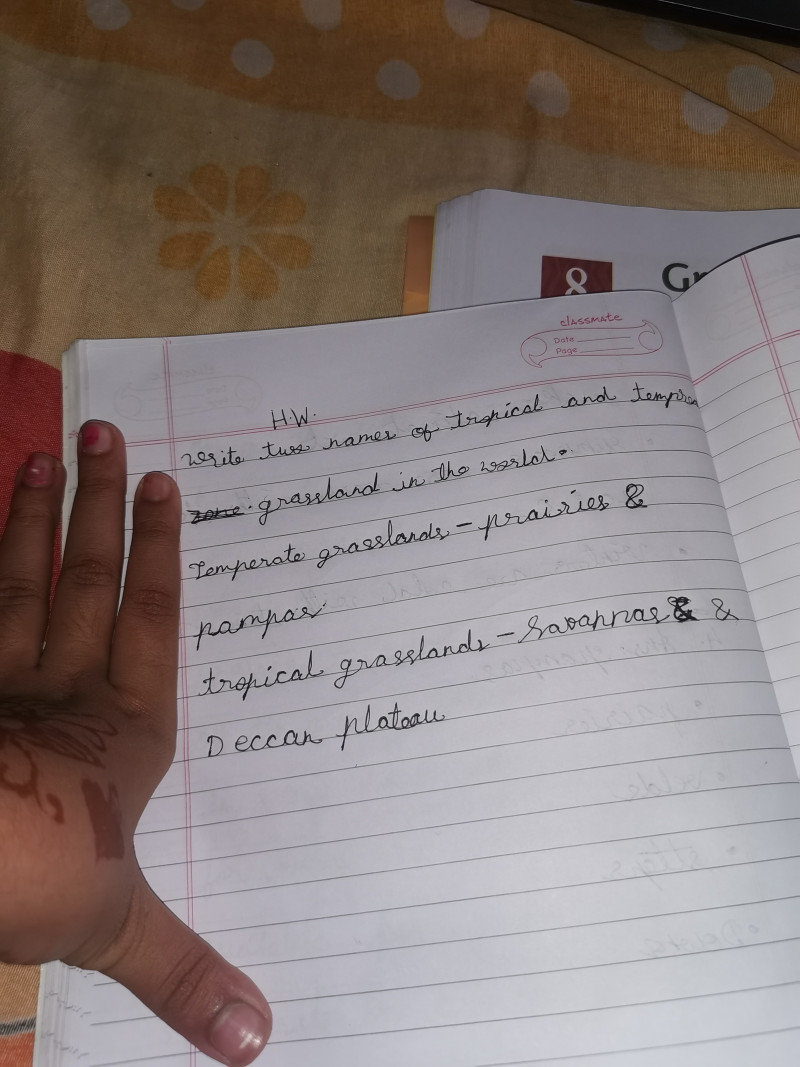 8 Gr
classmate
Date
Page
H.W.
write two names of tropical and tempra
zone. grassland in the world.
Temperate grasslands - prairies &
pampas
tropical grasslands - Savannas & &
Deccan plateau